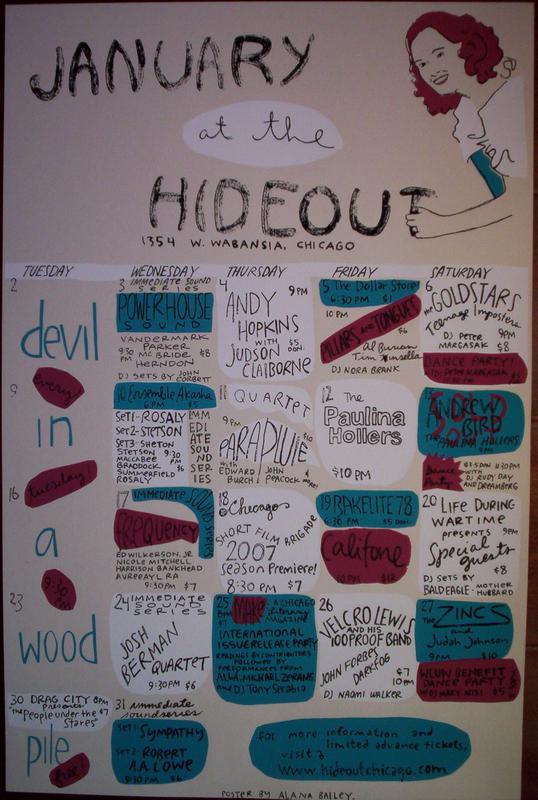 JANUARY
at the
HIDEOUT
1354 W. WABANSIA, CHICAGO
TUESDAY WEDNESDAY THURSDAY FRIDAY SATURDAY
2
devil
every
9
in
tuesday!
16
a
9:30 PM
23
wood
30 DRAG CITY 8PM
presents
"The People under the $7
Stares"
pile
free!
3 IMMEDIATE SOUND
SERIES
POWERHOUSE
SOUND
VANDERMARK
PARKER
9:30 PM MCBRIDE $8
HERNDON
DJ SETS BY JOHN
CORBETT
10 Ensemble Akasha
6 PM $5
SET1-ROSALY
SET2-STETSON
SET3-SHETON
STETSON 9:30
MACCABEE PM
BRADDOCK $6
SUMMERFIELD
ROSALY
IMMEDIATE SOUND SERIES
17 IMMEDIATE SOUND SERIES
FREQUENCY
ED WILKERSON, JR
NICOLE MITCHELL
HARRISON BANKHEAD
AVREEAYL RA
9:30PM $7
24 IMMEDIATE
SOUND
SERIES
JOSH
BERMAN
QUARTET
9:30PM $6
31 immediate
sound series
Set1: SYMPATHY
Set2: ROBERT
A.A. LOWE
9:30 PM $6
4 9PM
ANDY
HOPKINS
WITH $5 DON.
JUDSON
CLAIBORNE
11 QUARTET
9PM $10
PARAPLUIE
with
EDWARD BURCH
JOHN PEACOCK
more!
18
@Chicago
SHORT FILM BRIGADE
2007
Season Premiere!
8:30 PM $7
25 MAKE: A CHICAGO
Literary
8PM MAGAZINE
$7
INTERNATIONAL
ISSUE RELEASE PARTY
READINGS BY CONTRIBUTORS
FOLLOWED BY
PERFORMANCES FROM
ALLA, MICHAEL ZERANG
and DJ Tony Sarabia
5 The Dollar Store
6:30 PM $1
10PM
PILLARS AND TONGUES
$6
Al Burian
Tim Kinsella
DJ NORA BRANK
12 The
Paulina
Hollers
$10 PM
19 BAKELITE 78
6:30 PM $5 DON.
Califone
10 PM $12
26
VELCRO LEWIS
AND HIS
100 PROOF BAND
JOHN FORBES
DARK FOG
$7
10PM
DJ NAOMI WALKER
6
THE GOLDSTARS
Teenage Imposters
9PM
DJ PETER
MARGASAK $8
DANCE PARTY!
13
ANDREW
BIRD
THE PAULINA HOLLERS
9PM
Dance
Party
WITH RUDY DAY
AND DREAMBERG
20 LIFE DURING
WARTIME
presents 9PM
Special
guests
$8
DJ SETS BY
BALD EAGLE - MOTHER
HUBBARD
27
THE ZINCS
and
Judah Johnson
9PM $10
WLUW BENEFIT
DANCE PARTY
for more information and
limited advance tickets,
visit
www.hideoutchicago.com
POSTER BY ALANA BAILEY.